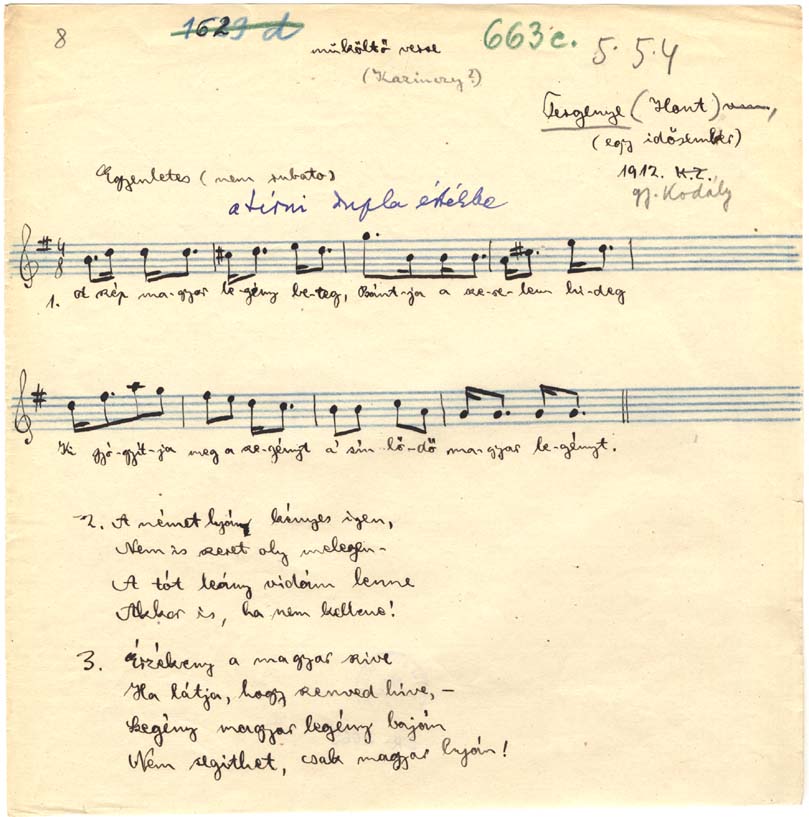 8
1623 d
műköltő verse
663 c.
5. 5. 4
(Kazinczy?)
Tergenye (Hont)
(egy idősember)
1912.
gy. Kodály
Egyenletes (nem rubato)
átírni dupla értékbe
4
8
1. A szép ma-gyar le-gény be-teg, Bánt-ja a sze-re-lem hi-deg
Ki gyó-gyít-ja meg a sze-gényt a' sín-lő-dő ma-gyar le-gényt.
2. A német lyány kényes igen,
Nem is szeret oly melegen –
A tót leány vidám lenne
Akkor is, ha nem kellene!
3. Érzékeny a magyar szive
Ha látja, hogy szenved hive, –
Szegény magyar legény baján
Nem segithet, csak magyar lyán!